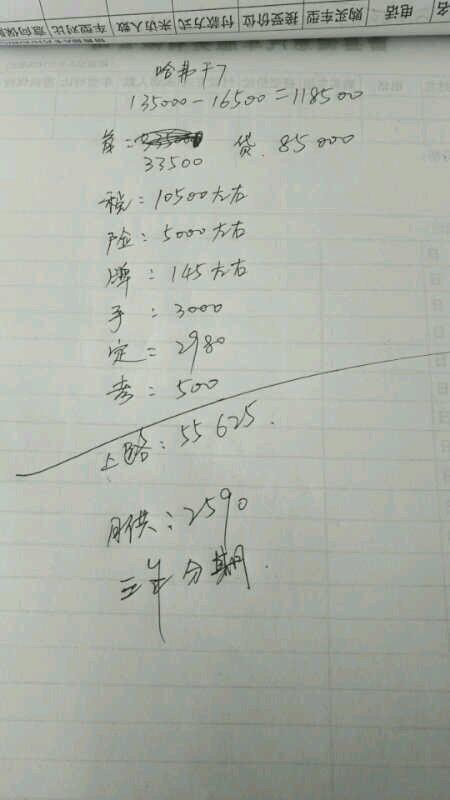 名 电话 购买车型 接受价位 付款方式 来访人数 车型对比
哈弗 F7
135000-16500=118500
首: 33500 贷. 85000
税: 10500左右
险: 5000左右
牌: 145左右
手: 3000
定: 2980
考: 500
上路: 55625.
月供: 2590
三年分期.